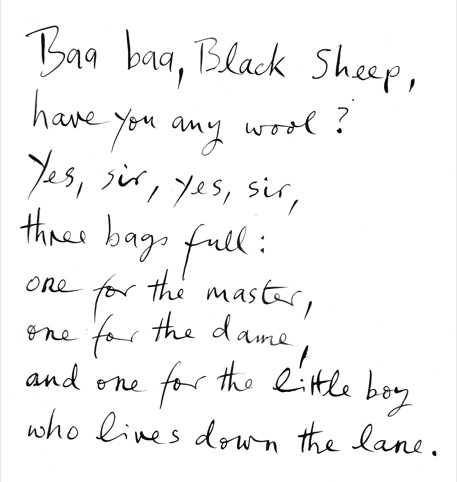 Baa baa, Black Sheep,
have you any wool?
Yes, sir, yes, sir,
three bags full:
one for the master,
one for the dame,
and one for the little boy
who lives down the lane.